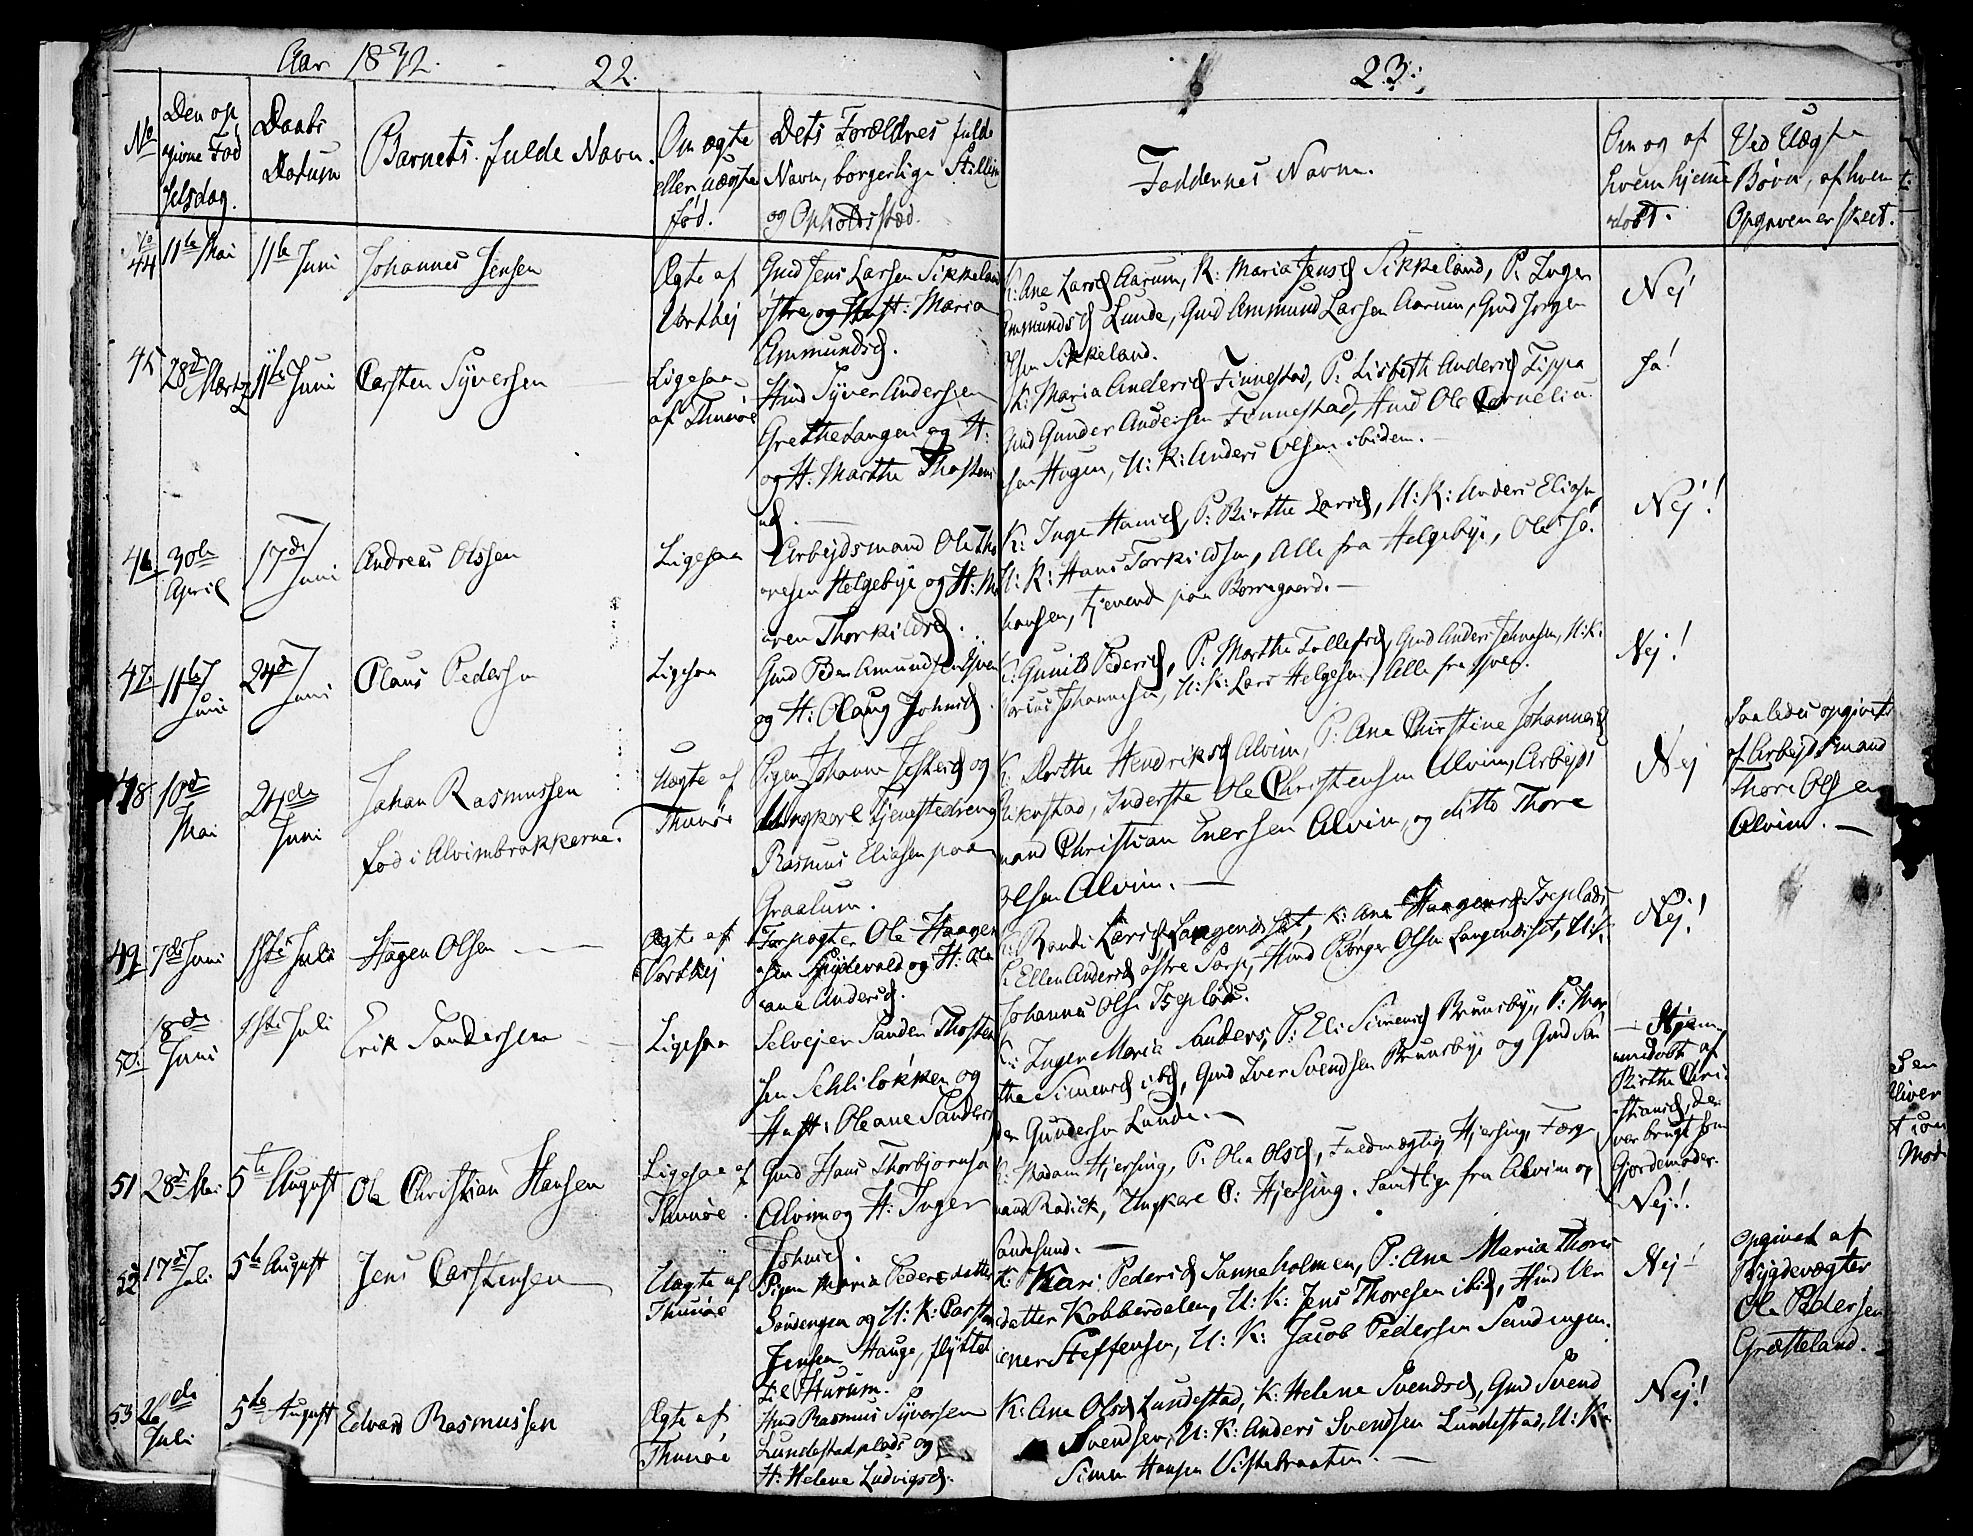 Aar 1832.
22.
23.
No
Den op
givne Fød
selsdag.
Daabs
Datum
Barnets fulde Navn.
Om ægte
eller uægte
fød.
Dets Forældres fulde
Navn, borgerlige Stilling
og Opholdsstæd.
Faddernes Navne.
Om og af
hvem hjemme
døbt.
Ved Uægte
Børn, af hvem
Opgaven er skeet.
No
44
11te Mai
11te Juni
Johannes Jensen
Ægte af
Gmd Jens Larsen Sikkeland
østre og Hust: Maria
Ammundsd.
K: Ane Larsd Aarum, K: Maria Jensd Sikkeland, P: Inger
Ammundsd Lunde, Gmd Ammund Larsen Aarum, Gmd Jørgen
Olsen Sikkeland.
Nej
45
28de Martz
11te Juni
Carsten Syversen
Ligesaa
af Thunøe
Hmd Syver Andersen
Grethelangen og H:
og H: Marthe Thosten
sd.
K: Maria Andersd Finnestad, P: Lisbeth Andersd
Gmd Gunder Andersen Finnestad, Hmd Ole Cornelius
sen Hagen, U: K: Anders Olsen ibidem.
Ja!
46
30te
April
17de
Juni
Andreas Olssen
Ligesaa
Arbejdsmand Ole Tho
resen Helgebye og H: Ma
ren Thorkildsd.
K: Inge Hansd, P: Birthe Larsd, U: K: Anders Eliasn,
U: K: Hans Torkildsen, Alle fra Helgebye, Ole Jo
hansen, tjenende paa Borregaard.
Nej!
47.
11te
Juni
24de
Juni
Olaus Pedersen
Ligesaa
Gmd Peder Amundsen
og H: Olaug Johnsd.
K: Gunild Pedersd, P: Marthe Tollefsd, Gmd Anders Johnsen, U: K:
Johannesen, U: K: Lars Helgesen, Alle fra
Nej!
48
10de
Mai
24de
Juni
Johan Rasmussen
fød i Alvimbrakkerne.
Uægte af
Thunøe
Pigen Johanne og
Ungkarl Tjenestedreng
Rasmus Eliasen paa
Graalum.
K: Dorthe Hendriksd Alvim, P: Ane Christine Johannesd
Inderste Ole Christensen Alvim, Arbejds
mand Christian Enersen Alvim, og ditto Thore
Olsen Alvim.
Nej
Saaledes opgivet
af Arbejdsmand
Thore Olsen
Alvim.
49
7de Juni
1ste Juli
Hagen Olsen
Ægte af
Forpagter Ole Haagen
sen og H: Ole
ane Andersd.
K: Randi Larsd Langenæset, K: Ane Haagensd Isepladsd
P: Ellen Andersd østre Sarp, Hmd Børger Olsen Langenæset, U: K:
Johannes Olsen Iseplads.
Nej!
50.
18de
Juni
1ste Juli
Erik Sandersen
Ligesaa
Selvejer Sanden Thosten
sen Schliløkken og
Hust: Oleane Sandersd
K: Inger Maria Sanders, P: Eli Simensd Brunsbye, P: Mar
the Simensd ibd, Gmd Iver Svendsen Brunsbye og Gmd San
der Gundersen Lunde.
Hjem
medøbt af
Birthe Chri
stiansd, der
var brugt som
Gjordemoder.
51
28de Mai
5te August
Ole Christian Hansen
Ligesaa af
Thunøe.
Gmd Hans Thorbjørnsen
Alvim og H: Inger
Johnsd.
K: Madam Hjersing, P: Olia Olsd, Fuldmægtig Hjersing, Færge
mand Radick, Ungkarl C: Hjersing. Samtlige fra Alvim og
Sandesund.
Nej!
52
17de
Juli
5te August
Jens Carstensen
Uægte af
Thunøe
Pigen Maria Pedersdatter
Sandengen og U: K: Carsten
Jensen Hauge, flyttet
til Hurum.
K: Kari Pedersd Sanneholmen, P: Ane Maria Thores
datter Kobberdalen, U: K: Jens Thoresen ibid, Hmd
Steffensen, U: K: Jacob Pedersen Sandengen.
Nej
Opgivet af
Bygdevægter
Ole Pedersen
Grætteland.
53
26de
Juli
5te August
Edvard Rasmussen
Ægte af
Thunøe
Hmd Rasmus Syversen
Lundestadplads og
H: Helene Ludvigsd.
K: Ane Olsd Lundestad, K: Helene Svendsd, Gmd Svend
Svendsen, U: K: Anders Svendsen Lundestad, U: K:
Simen Hansen Vistebraaten.
Nej!